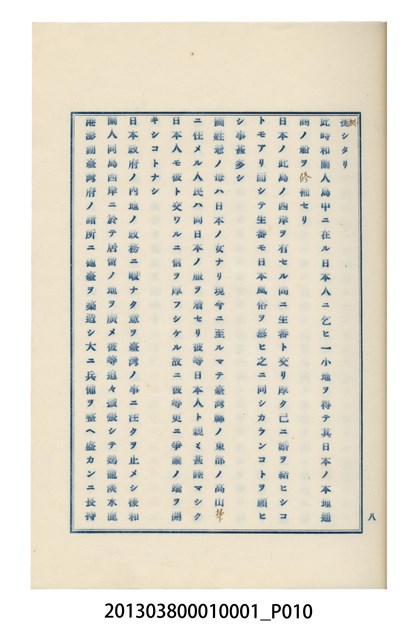 後シタリ
此時和蘭人島中ニ在ル日本人ニ乞ヒ一小地ヲ得テ其日本ノ本地通
商ノ船ヲ修補セリ
日本ノ此島ノ西岸ヲ有セル間ニ生蕃ト交リ厚ク已ニ婚ヲ結ヒシコ
トモアリ而シテ生蕃モ日本風俗ヲ慕ヒ之ト同シカランコトヲ願ヒ
シ事甚多シ
國姓爺ノ母ハ日本ノ女ナリ現今ニ至ルマテ臺灣縣ノ東部ノ高山
ニ住メル人民ハ尚日本ノ服ヲ着セリ彼等日本人ト親ミ甚睦マシク
日本人モ彼ト交ワルニ信ヲ厚フシケル故ニ彼等更ニ爭論ノ端ヲ開
キシコトナシ
日本政府ノ內地ノ政務ニ暇ナク意ヲ臺灣ノ事ニ注クヲ止メシ後和
蘭人同島西岸ニ於テ居留ノ地ヲ廣メ彼等追々蔓張シテ鷄籠淡水鹿
港澎湖臺灣府ノ諸所ニ砲臺ヲ築造シ大ニ兵備ヲ整ヘ盛カンニ長持
八
201303800010001_P010